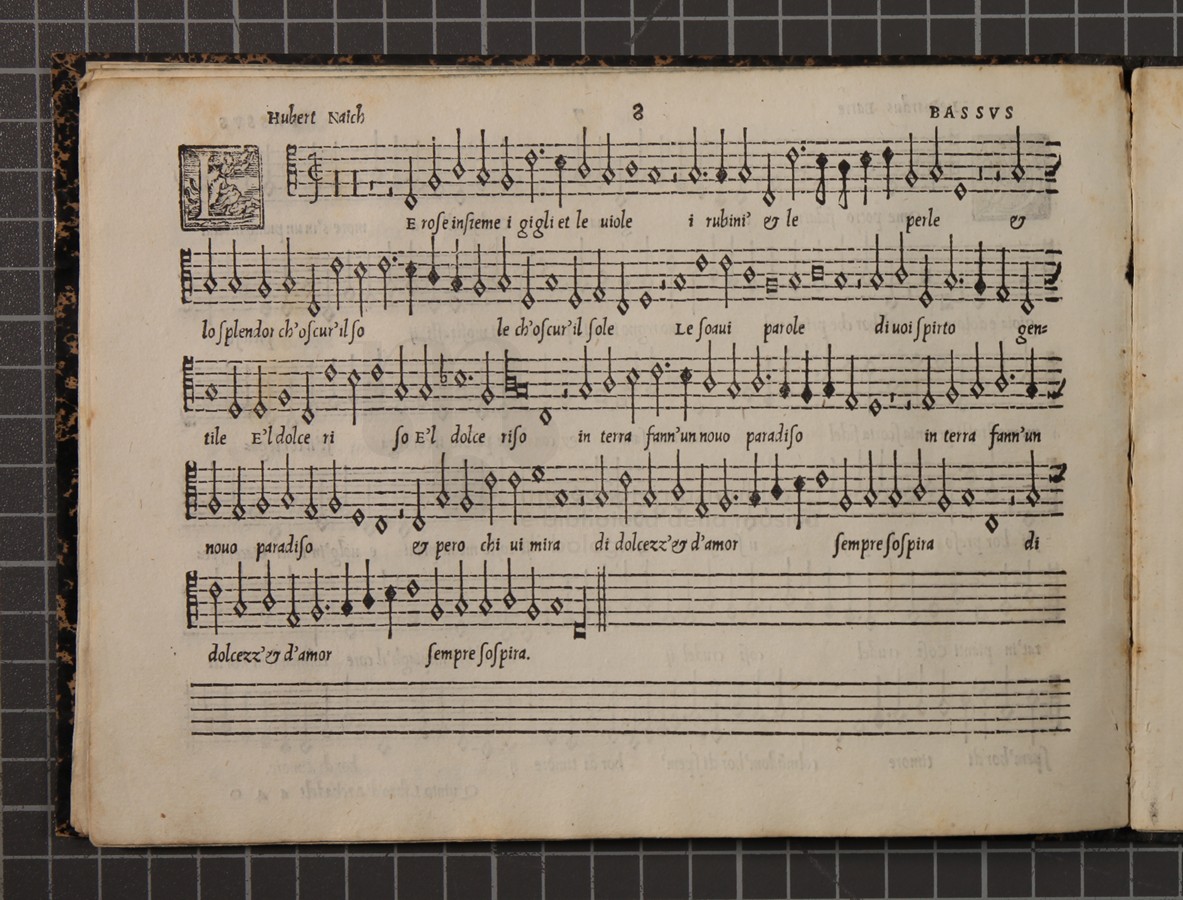 Hubert Naich 8 BASSVS
LE rose insieme i gigli et le uiole i rubini' & le perle &
lo splendor ch'oscur'il so le ch'oscur'il sole Le soaui parole di uoi spirto gen=
tile E'l dolce ri so E'l dolce riso in terra fann'un nouo paradiso in terra fann'un
nouo paradiso & pero chi ui mira di dolcezz'& d'amor sempre sospira di
dolcezz'& d'amor sempre sospira.